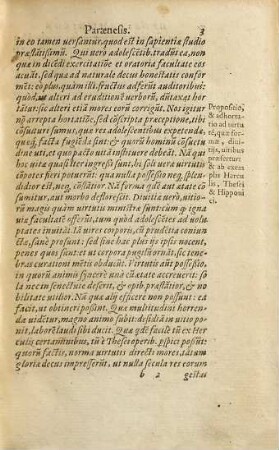 Parænesis. 3
in eo tamen uersantur, quod est in sapientiæ studio
præstātissimū. Qui uerò adolescētib. tradūt ea, non
qua in dicēdi exercitatiōe et oratoria facultate eos
acuāt. sed qua ad naturale decus honestatis confor
mēt: eo plus, quàm illi fructus adferūt auditoribus:
quòd, ut alteri ad eruditionē uerborū, dūtaxat hor
tātur, sic alteri etiā mores eorū corrigūt. Nos igitur
nō arrepta hortatiōe, sed cōscripta præceptione, tibi
cōsulturi sumus, quæ res adolescentibus expetendæ,
quæq́ue factu fugiēdæ sint & quorū hominū cōsuetu
dine uti, et quo pacto uitā instituere debeāt. Nā qui
ītu uitæ quasi iter ingressi sunt, hi soli uerā uirtutem
cōpotes fieri potuerūt: qua nulla possessio neq́; splen
didior est, neq́; cōstātior. Nā forma qdē aut ætate cō
sumitur, aut morbo deflorescit. Diuitiæ uerò, uitiorū
magis quàm uirtutis ministræ cùm sumptū & igna
uiæ facultatē offerūt, tum quòd adolescētes ad uolu
ptates inuitāt. Iā uires corporis, cū prudētia coniun
ctæ, sanè prosunt: sed sine hac plus iis ipsis nocent,
penes quos sunt: et ut corpora pugilū ornāt, sic tenea
bras curationi mētis obducūt. Virtutis aūt possessio,
in quorū animis sīcerè unà cū ætate accreuerit: ea so
la nec in senectute deserit, & opib. præstātior, & no
bilitate utilior. Nā quæ alijs efficere non possunt: ea
facit, ut obtineri possint. Quæ multitudini horren
da uidētur, magno animo subit: desidiā in uitio po
nit, laborē laudi sibi ducit. Qua qdē facile tū ex Her
culis certaminibus, tū è Thesei operib. pspici possūt:
quorū factis, norma uirtutis directi mores, tātum
gloriæ decus impresserūt, ut nulla secula res eorum
b 2 gestas
Propositio,
& adhorta-
tio ad uirtu
tē, quæ for-
mæ, diuitijs,
uiribus
præfertur:
& ab exem
plis Hercu
lis, Thesei
& Hipponi
ci.